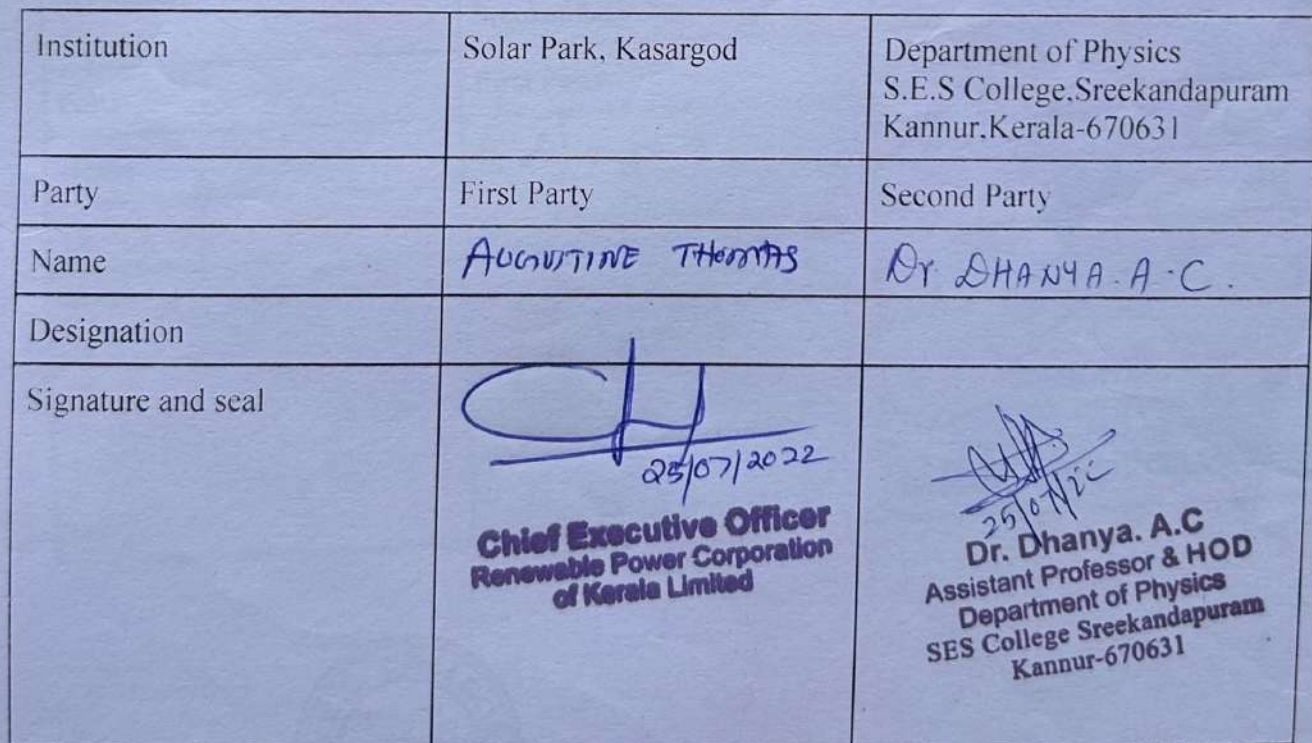 Institution
Solar Park, Kasargod
Department of Physics
S.E.S College.Sreekandapuram
Kannur.Kerala-670631
Party
First Party
Second Party
Name
AUGUSTINE THOMAS
Dr DHANYA. A. C.
Designation
Signature and seal
25/07/2022
Chief Executive Officer
Renewable Power Corporation
of Kerala Limited
25/07/22
Dr. Dhanya. A.C
Assistant Professor & HOD
Department of Physics
SES College Sreekandapuram
Kannur-670631